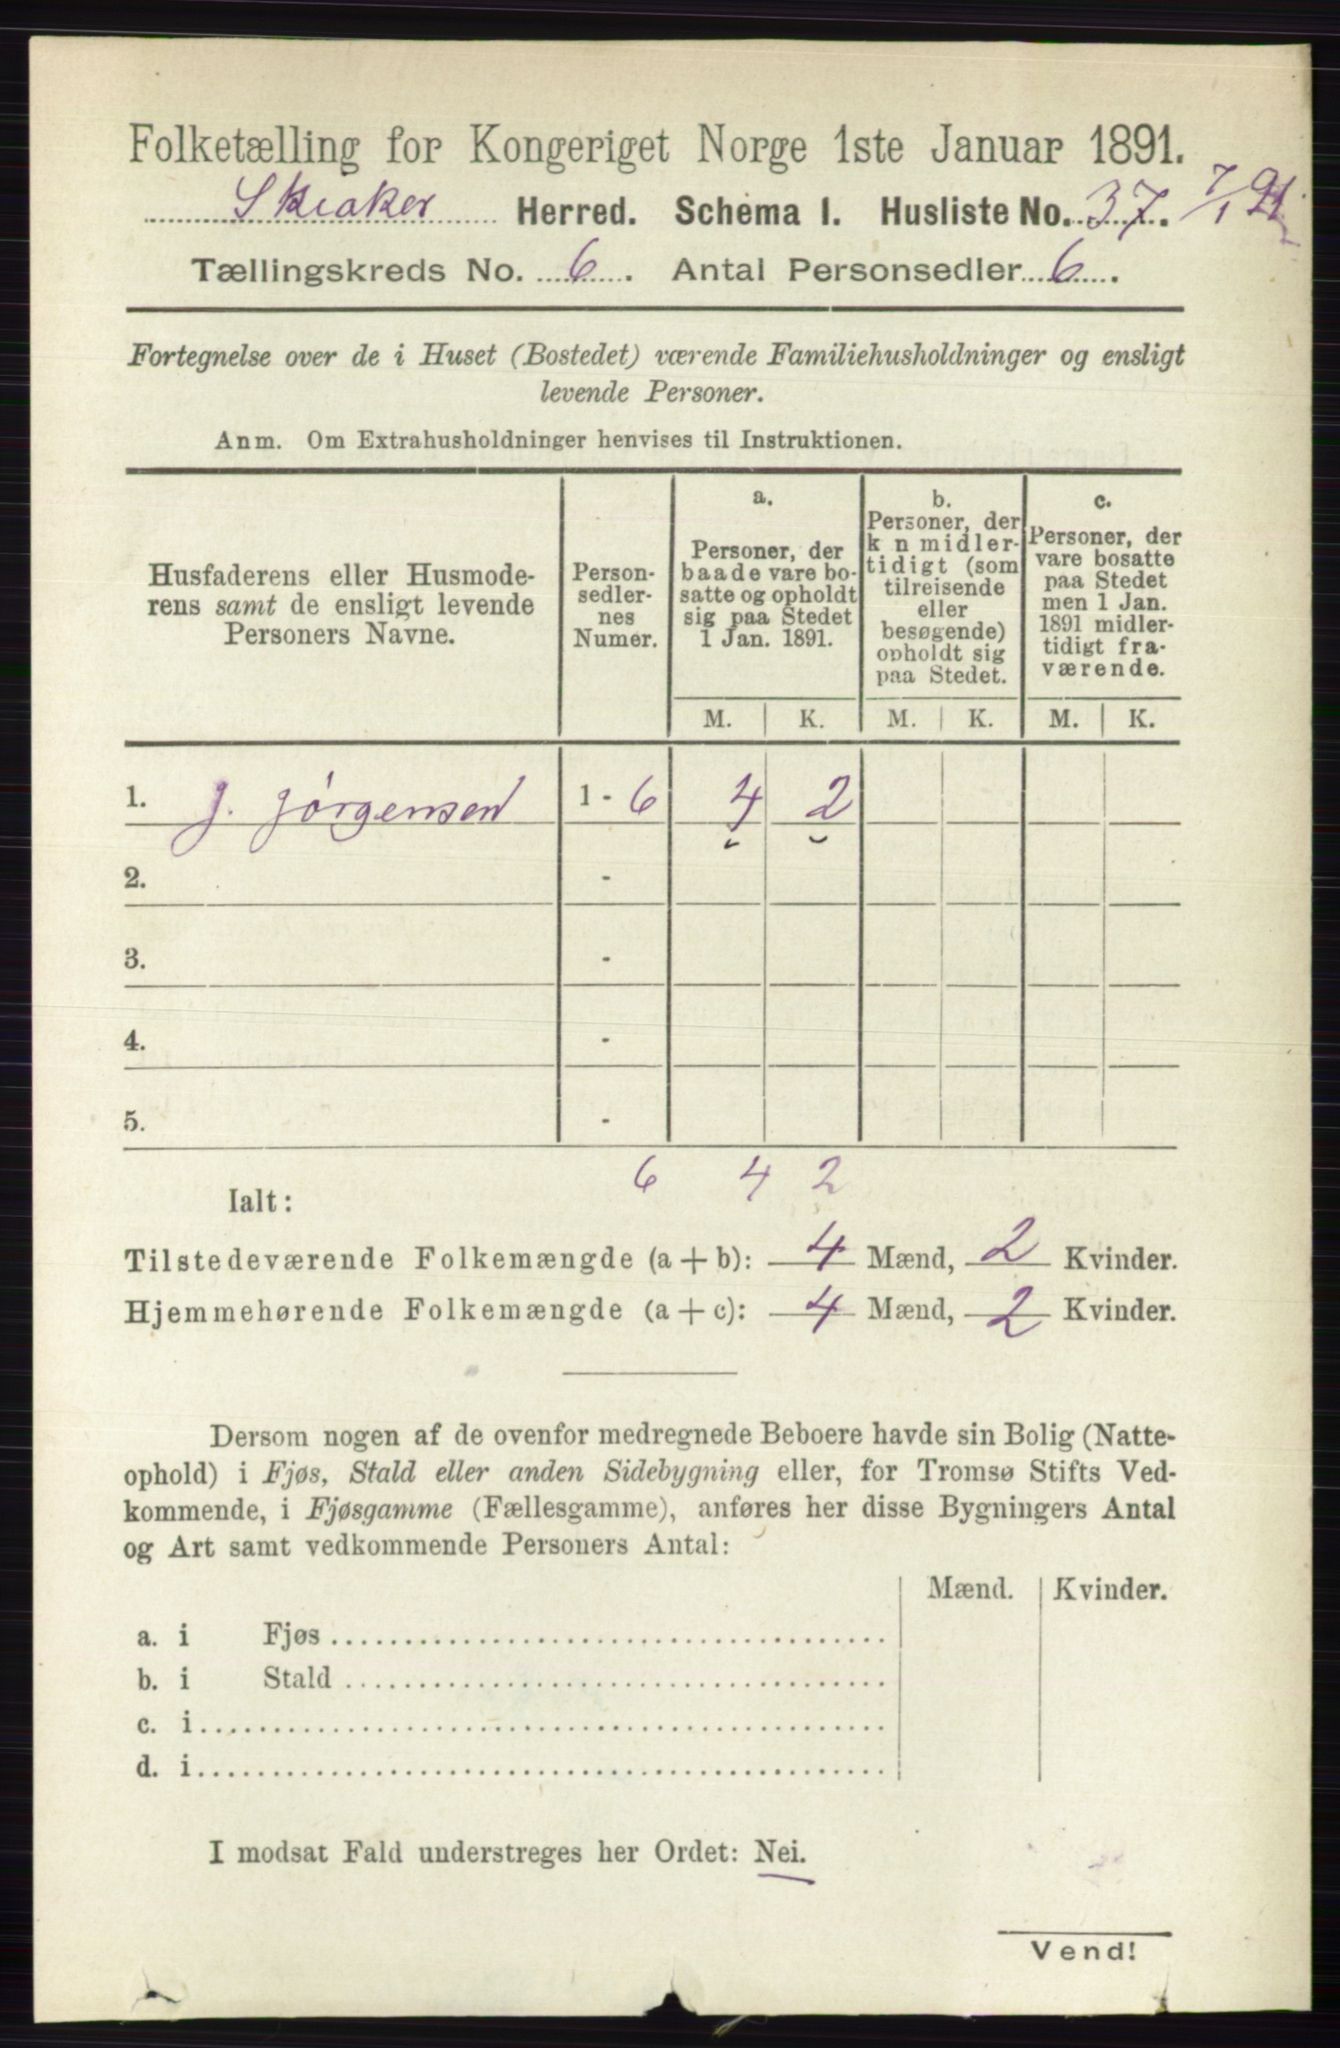 Folketælling for Kongeriget Norge 1ste Januar 1891.
Skiaker Herred. Schema 1. Husliste No. 37. 7/1 91
Tællingskreds No. 6. Antal Personsedler 6.
Fortegnelse over de i Huset (Bostedet) værende Familiehusholdninger og ensligt
levende Personer.
Anm. Om Extrahusholdninger henvises til Instruktionen.
Husfaderens eller Husmode-
rens samt de ensligt levende
Personers Navne.
Person-
sedler-
nes
Numer.
a.
Personer, der
baade vare bo-
satte og opholdt
sig paa Stedet
1 Jan. 1891.
b.
Personer, der
k n midler-
tidigt (som
tilreisende
eller
besøgende)
opholdt sig
paa Stedet.
c.
Personer, der
vare bosatte
paa Stedet
men 1 Jan.
1891 midler-
tidigt fra-
værende.
M. K. M. K. M. K.
1. J. Jørgensen 1 - 6 4 2
2. -
3. -
4. -
5. -
6 4 2
Ialt:
Tilstedeværende Folkemængde (a + b): 4 Mænd, 2 Kvinder.
Hjemmehørende Folkemængde (a + c): 4 Mænd, 2 Kvinder.
Dersom nogen af de ovenfor medregnede Beboere havde sin Bolig (Natte-
ophold) i Fjøs, Stald eller anden Sidebygning eller, for Tromsø Stifts Ved-
kommende, i Fjøsgamme (Fællesgamme), anføres her disse Bygningers Antal
og Art samt vedkommende Personers Antal:
Mænd. Kvinder.
a. i Fjøs
b. i Stald
c. i
d. i
I modsat Fald understreges her Ordet: Nei.
Vend!